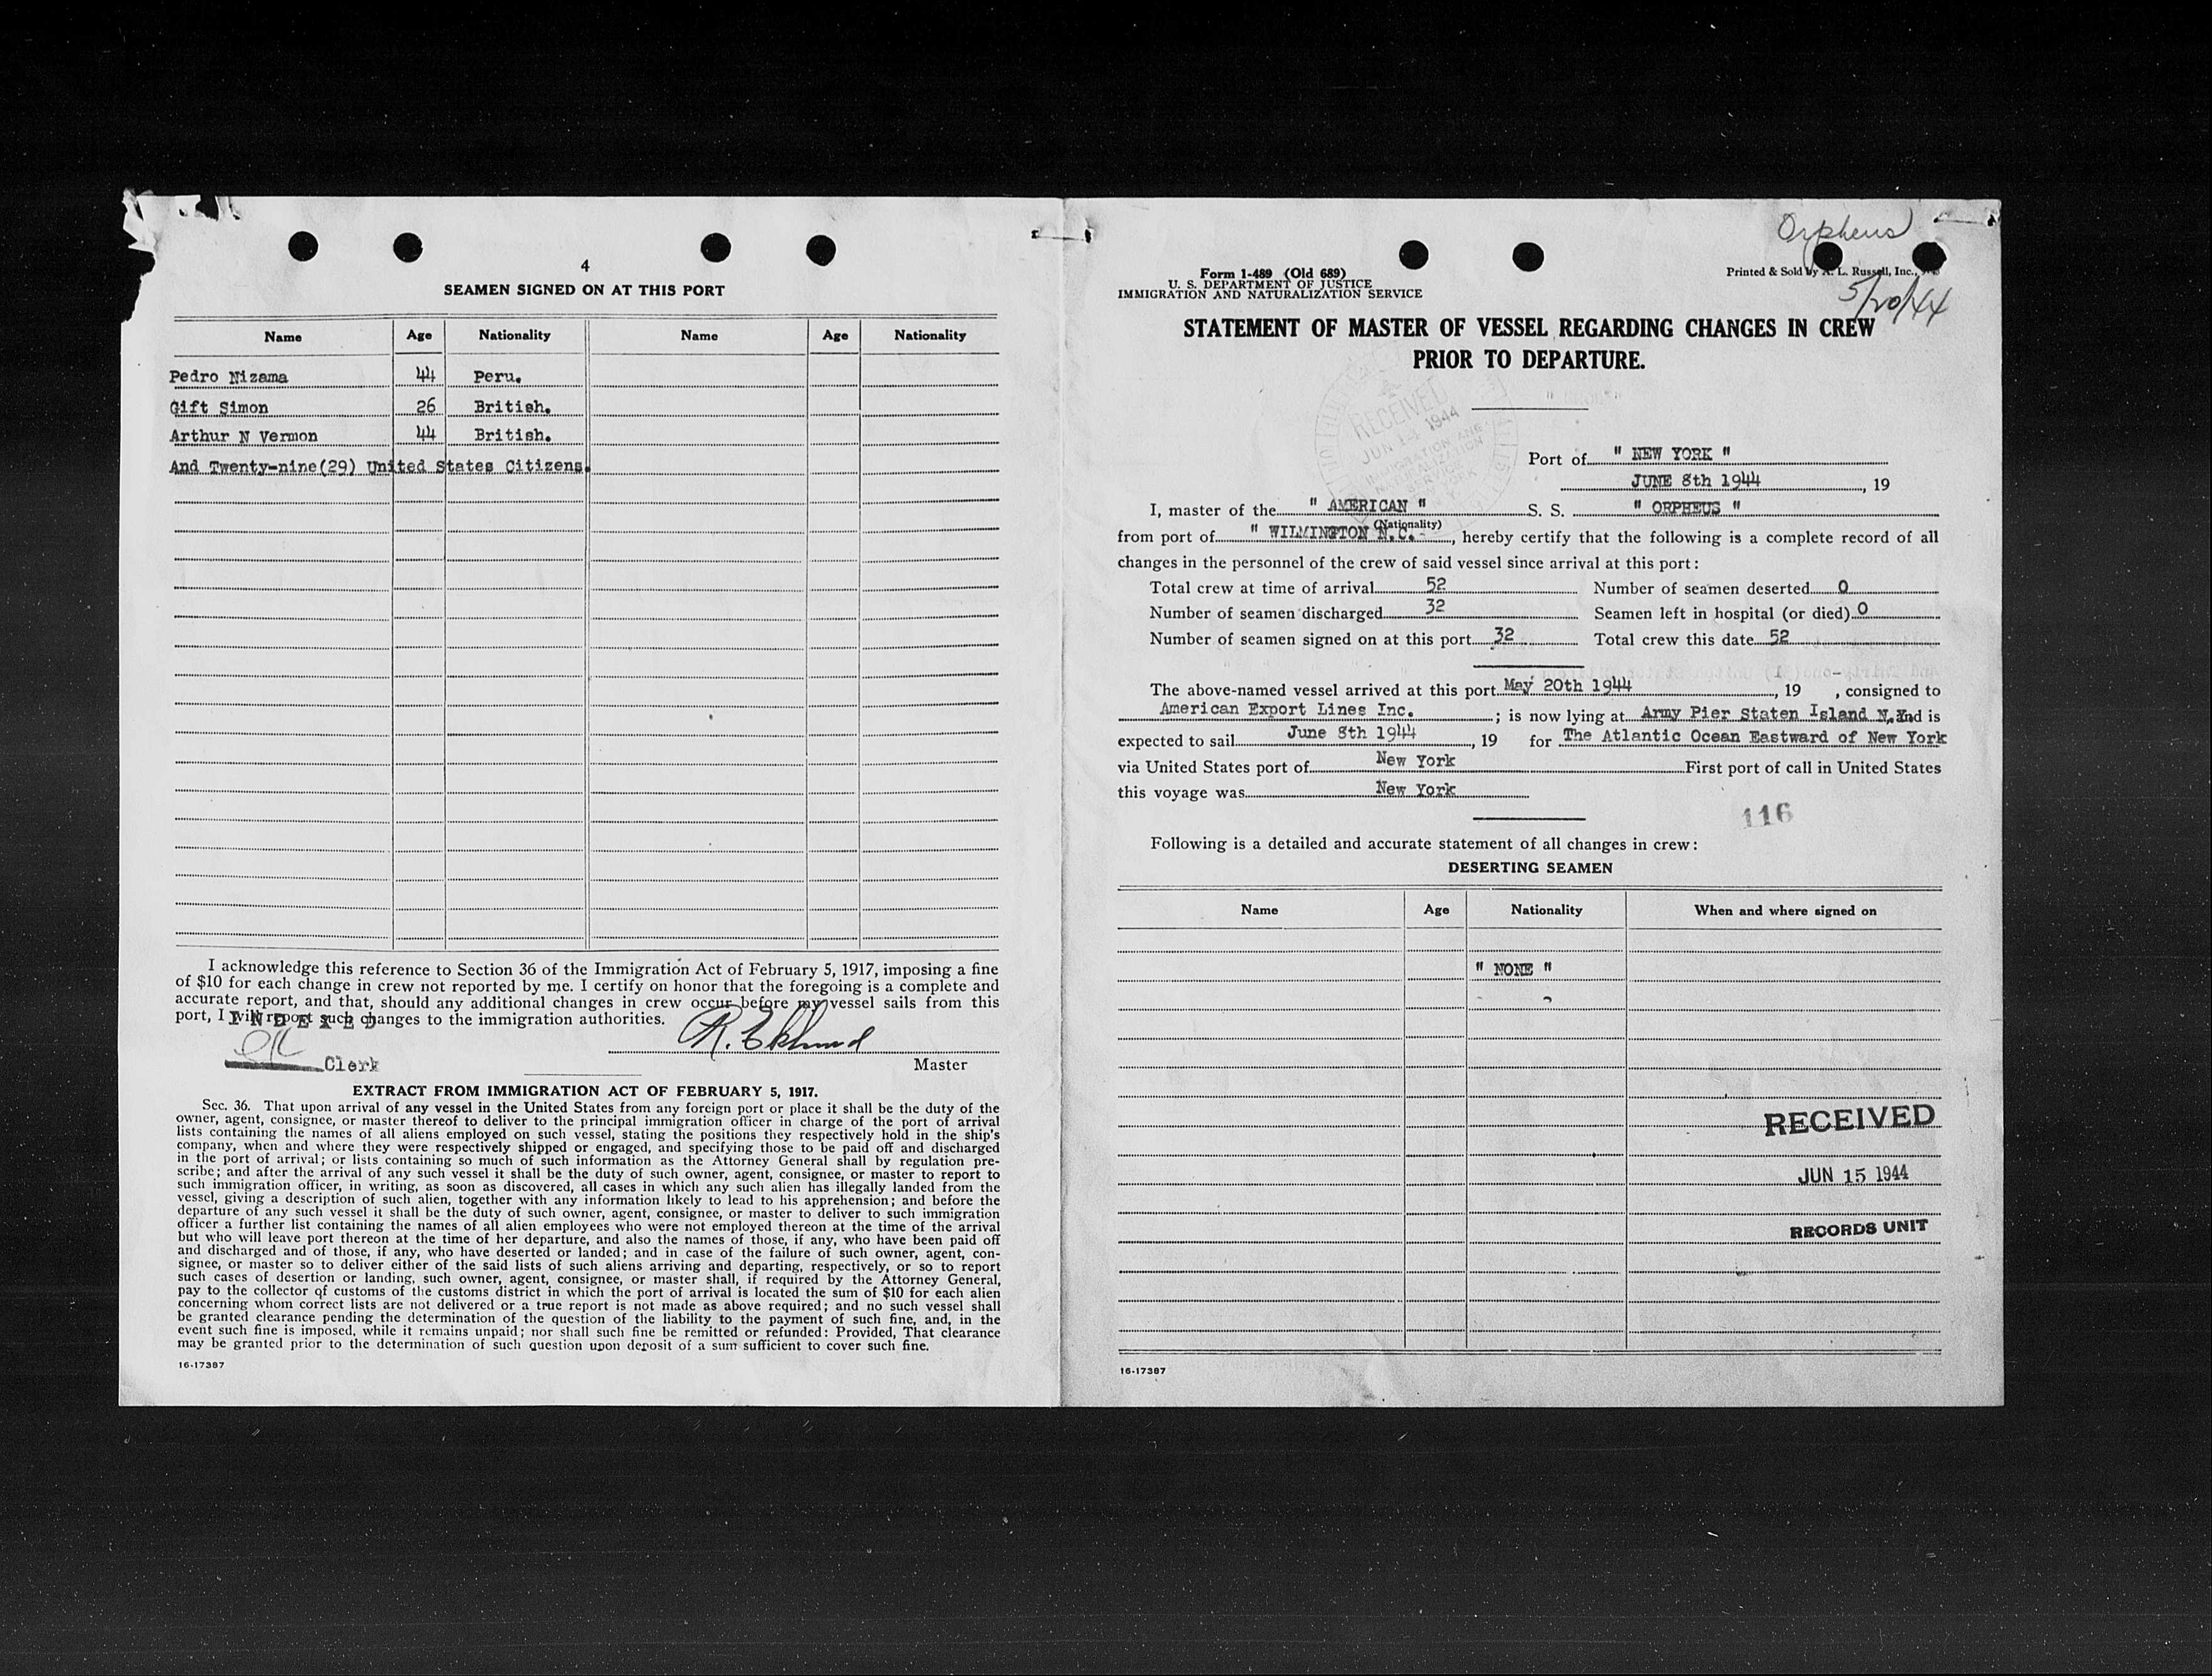 4
SEAMEN SIGNED ON AT THIS PORT
Name Age Nationality Name Age Nationality
Pedro Nizama 44 Peru.
Gift Simon 26 British.
Arthur N Vermon 44 British.
And Twenty-nine(29) United States Citizens.
I acknowledge this reference to Section 36 of the Immigration Act of February 5, 1917, imposing a fine
of $10 for each change in crew not reported by me. I certify on honor that the foregoing is a complete and
accurate report, and that, should any additional changes in crew occur before my vessel sails from this
port, I will report such changes to the immigration authorities.
INDEXED
R. Eklund
Clerk
Master
EXTRACT FROM IMMIGRATION ACT OF FEBRUARY 5, 1917.
Sec. 36. That upon arrival of any vessel in the United States from any foreign port or place it shall be the duty of the
owner, agent, consignee, or master thereof to deliver to the principal immigration officer in charge of the port of arrival
lists containing the names of all aliens employed on such vessel, stating the positions they respectively hold in the ship's
company, when and where they were respectively shipped or engaged, and specifying those to be paid off and discharged
in the port of arrival; or lists containing so much of such information as the Attorney General shall by regulation pre-
scribe; and after the arrival of any such vessel it shall be the duty of such owner, agent, consignee, or master to report to
such immigration officer, in writing, as soon as discovered, all cases in which any such alien has illegally landed from the
vessel, giving a description of such alien, together with any information likely to lead to his apprehension; and before the
departure of any such vessel it shall be the duty of such owner, agent, consignee, or master to deliver to such immigration
officer a further list containing the names of all alien employees who were not employed thereon at the time of the arrival
but who will leave port thereon at the time of her departure, and also the names of those, if any, who have been paid off
and discharged and of those, if any, who have deserted or landed; and in case of the failure of such owner, agent, con-
signee, or master so to deliver either of the said lists of such aliens arriving and departing, respectively, or so to report
such cases of desertion or landing, such owner, agent, consignee, or master shall, if required by the Attorney General,
pay to the collector of customs of the customs district in which the port of arrival is located the sum of $10 for each alien
concerning whom correct lists are not delivered or a true report is not made as above required; and no such vessel shall
be granted clearance pending the determination of the question of the liability to the payment of such fine, and, in the
event such fine is imposed, while it remains unpaid; nor shall such fine be remitted or refunded: Provided, That clearance
may be granted prior to the determination of such question upon deposit of a sum sufficient to cover such fine.
16-17387
Orpheus
Form 1-489 (Old 689)
U. S. DEPARTMENT OF JUSTICE
IMMIGRATION AND NATURALIZATION SERVICE
Printed & Sold by L. Russell, Inc.,
5/20/44
STATEMENT OF MASTER OF VESSEL REGARDING CHANGES IN CREW
PRIOR TO DEPARTURE.
RECEIVED
JUN 14 1944
Port of " NEW YORK "
JUNE 8th 1944, 19
I, master of the " AMERICAN " S. S. " ORPHEUS "
(Nationality)
from port of " WILMINGTON N.C. , hereby certify that the following is a complete record of all
changes in the personnel of the crew of said vessel since arrival at this port:
Total crew at time of arrival 52 Number of seamen deserted 0
Number of seamen discharged 32 Seamen left in hospital (or died) 0
Number of seamen signed on at this port 32 Total crew this date 52
The above-named vessel arrived at this port May 20th 1944, 19 , consigned to
American Export Lines Inc. ; is now lying at Army Pier Staten Island N.Y. and is
expected to sail June 8th 1944, 19 for The Atlantic Ocean Eastward of New York
via United States port of New York First port of call in United States
this voyage was New York
116
Following is a detailed and accurate statement of all changes in crew:
DESERTING SEAMEN
Name Age Nationality When and where signed on
" NONE "
RECEIVED
JUN 15 1944
RECORDS UNIT
16-17387